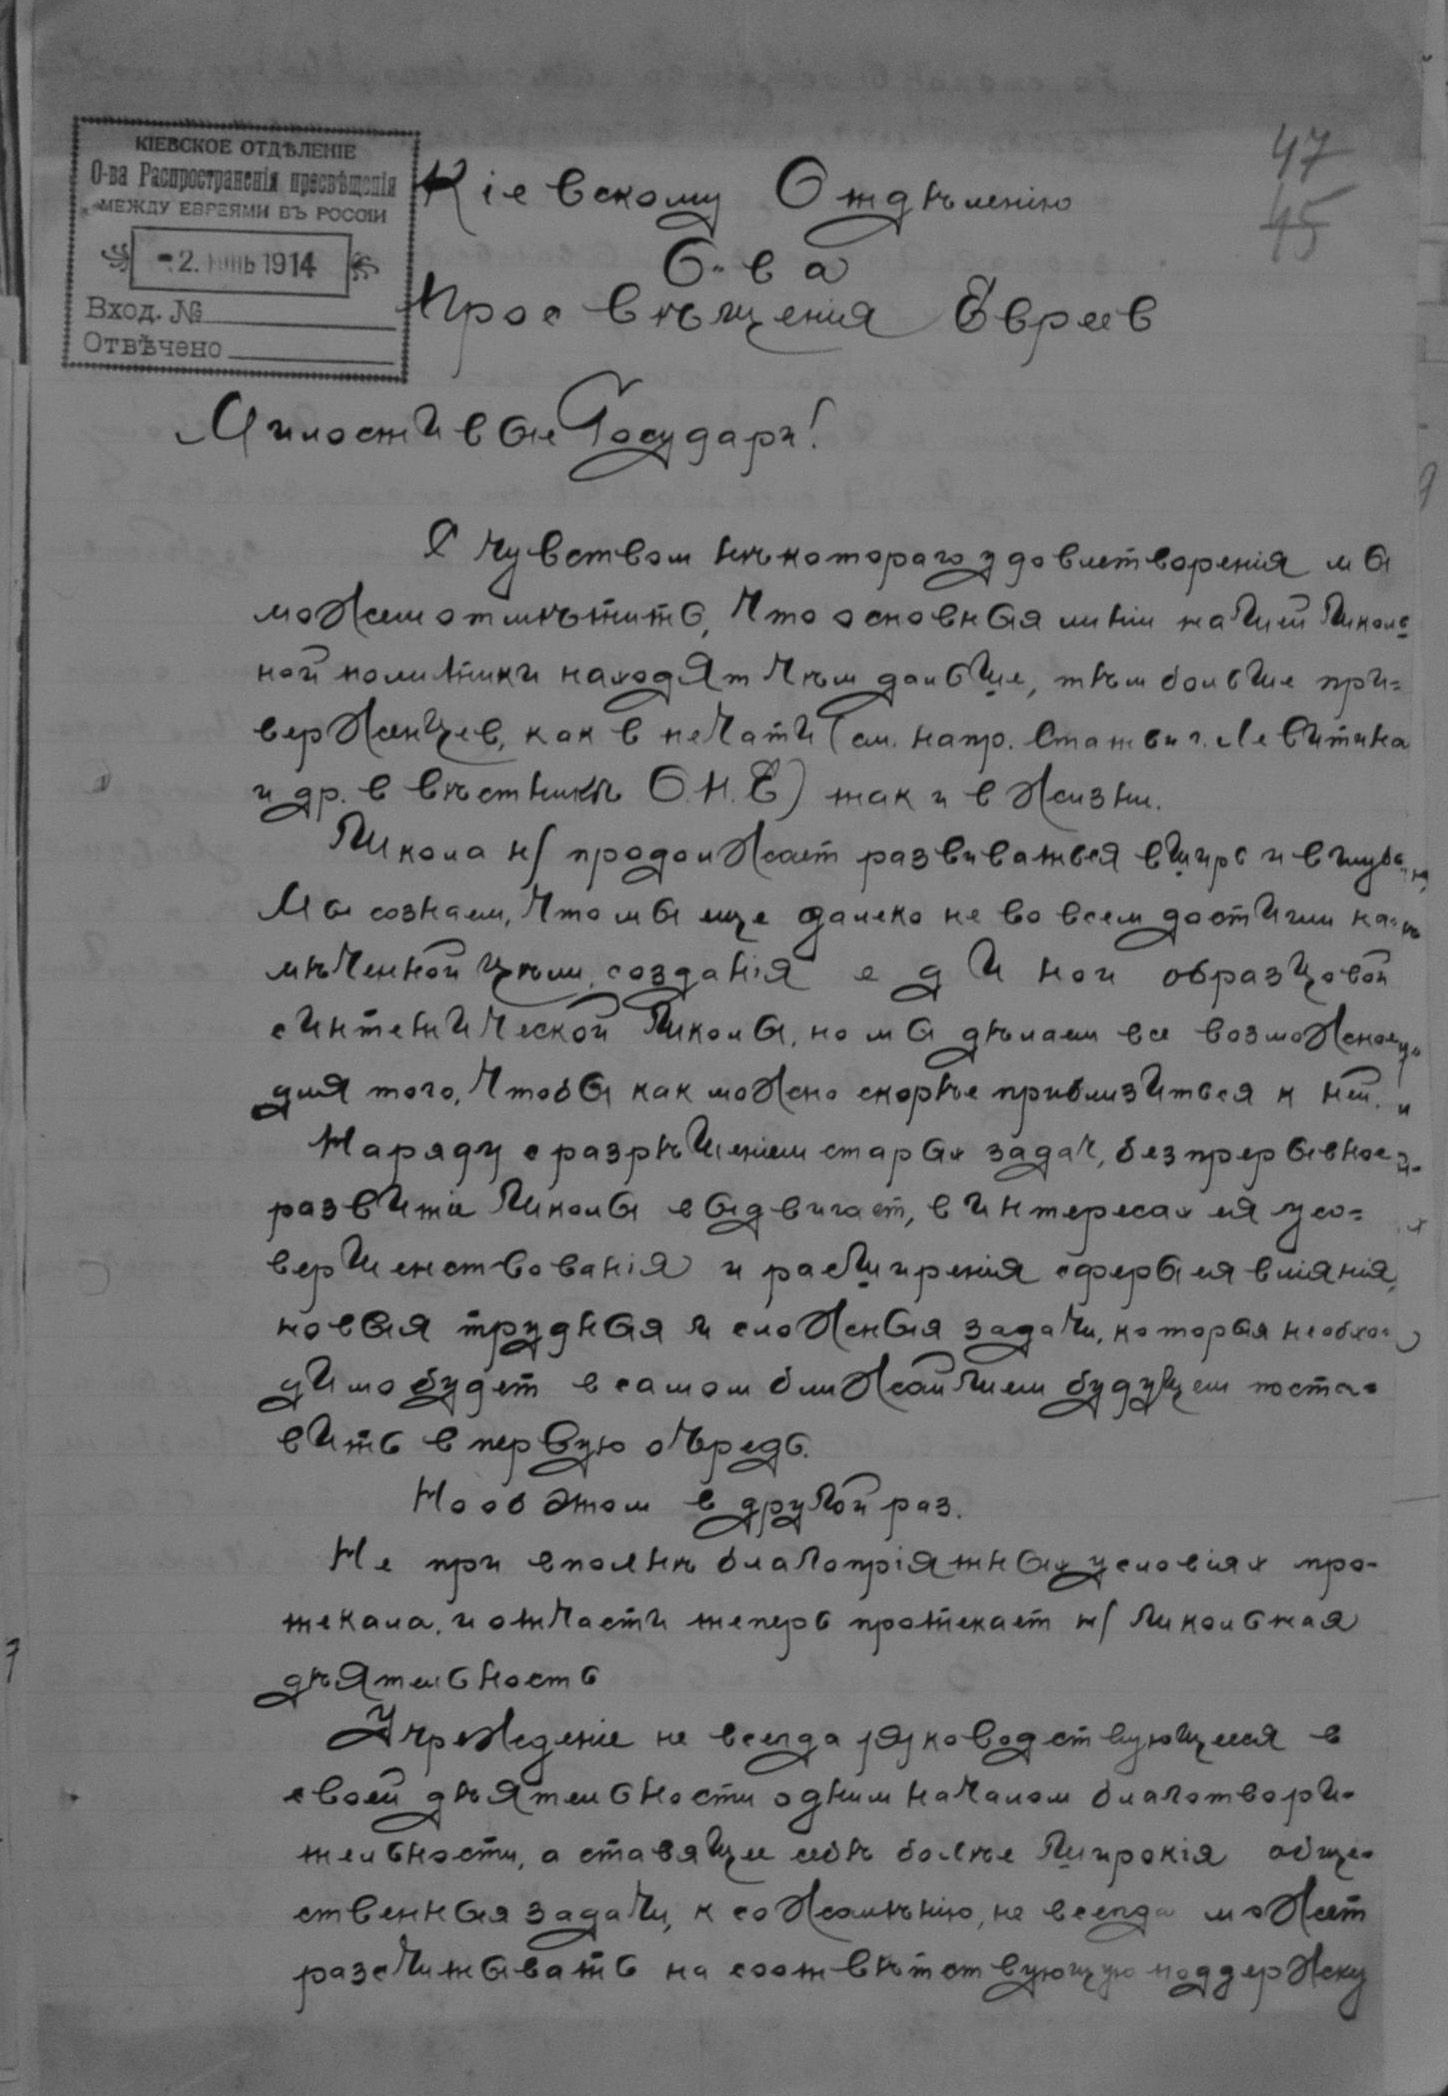 КІЕВСКОЕ ОТДѢЛЕНІЕ
О-ва Распространенія просвѣщенія
МЕЖДУ ЕВРЕЯМИ ВЪ РОССІИ
-2. ІЮНЬ 1914
Вход. №
Отвѣчено
47
45
Кіевскому Отдѣленію
О-ва
Просвѣщенія Евреев
Милостивые Государи!
С чувством нѣкотораго удовлетворенія мы
можем отмѣтить, что основныя линіи нашей школь
ной политики находят чѣм дальше, тѣм больше при=
верженцев, как в печати (см. напр. Статьи г. Левитина
и др. в Вѣстникѣ О.П.Е) так и в жизни.
Школа н/ продолжает развиваться вширь и вглубь
Мы сознаем, что мы еще далеко не во всем достигли на=
мѣченной цѣли, созданія единой образцовой
синтетической школы, но мы дѣлаем все возможное
для того, чтобы как можно скорѣе приблизиться к ней.
Наряду с разрѣшеніем старых задач, безпрерывное
развитіе школы выдвигает, в интересах ея усо=
вершенствованія и расширенія сферы ея вліянія,
новыя трудныя и сложныя задачи, которыя необхо=
димо будет в самом ближайшем будущем поста=
вить в первую очередь.
Но об этом в другой раз.
Не при вполнѣ благопріятных условіях про-
текала, и отчасти теперь протекает н/ школьная
дѣятельность
Учрежденіе не всегда руководствующееся в
своей дѣятельности одним началом благотвори-
тельности, а ставящее себѣ болѣе широкія обще-
ственныя задачи, к сожалѣнію, не всегда может
разсчитывать на соотвѣтствующую поддержку